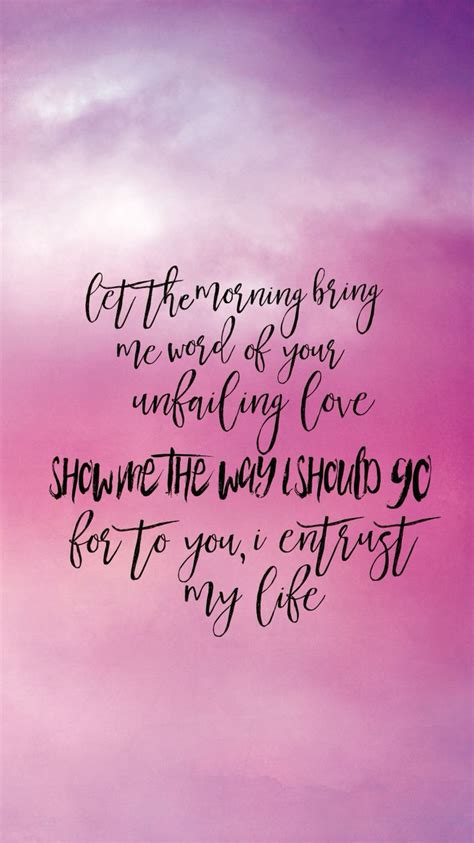 let the morning bring
me word of your
unfailing love
SHOW ME THE WAY I SHOULD GO
for to you, i entrust
my life